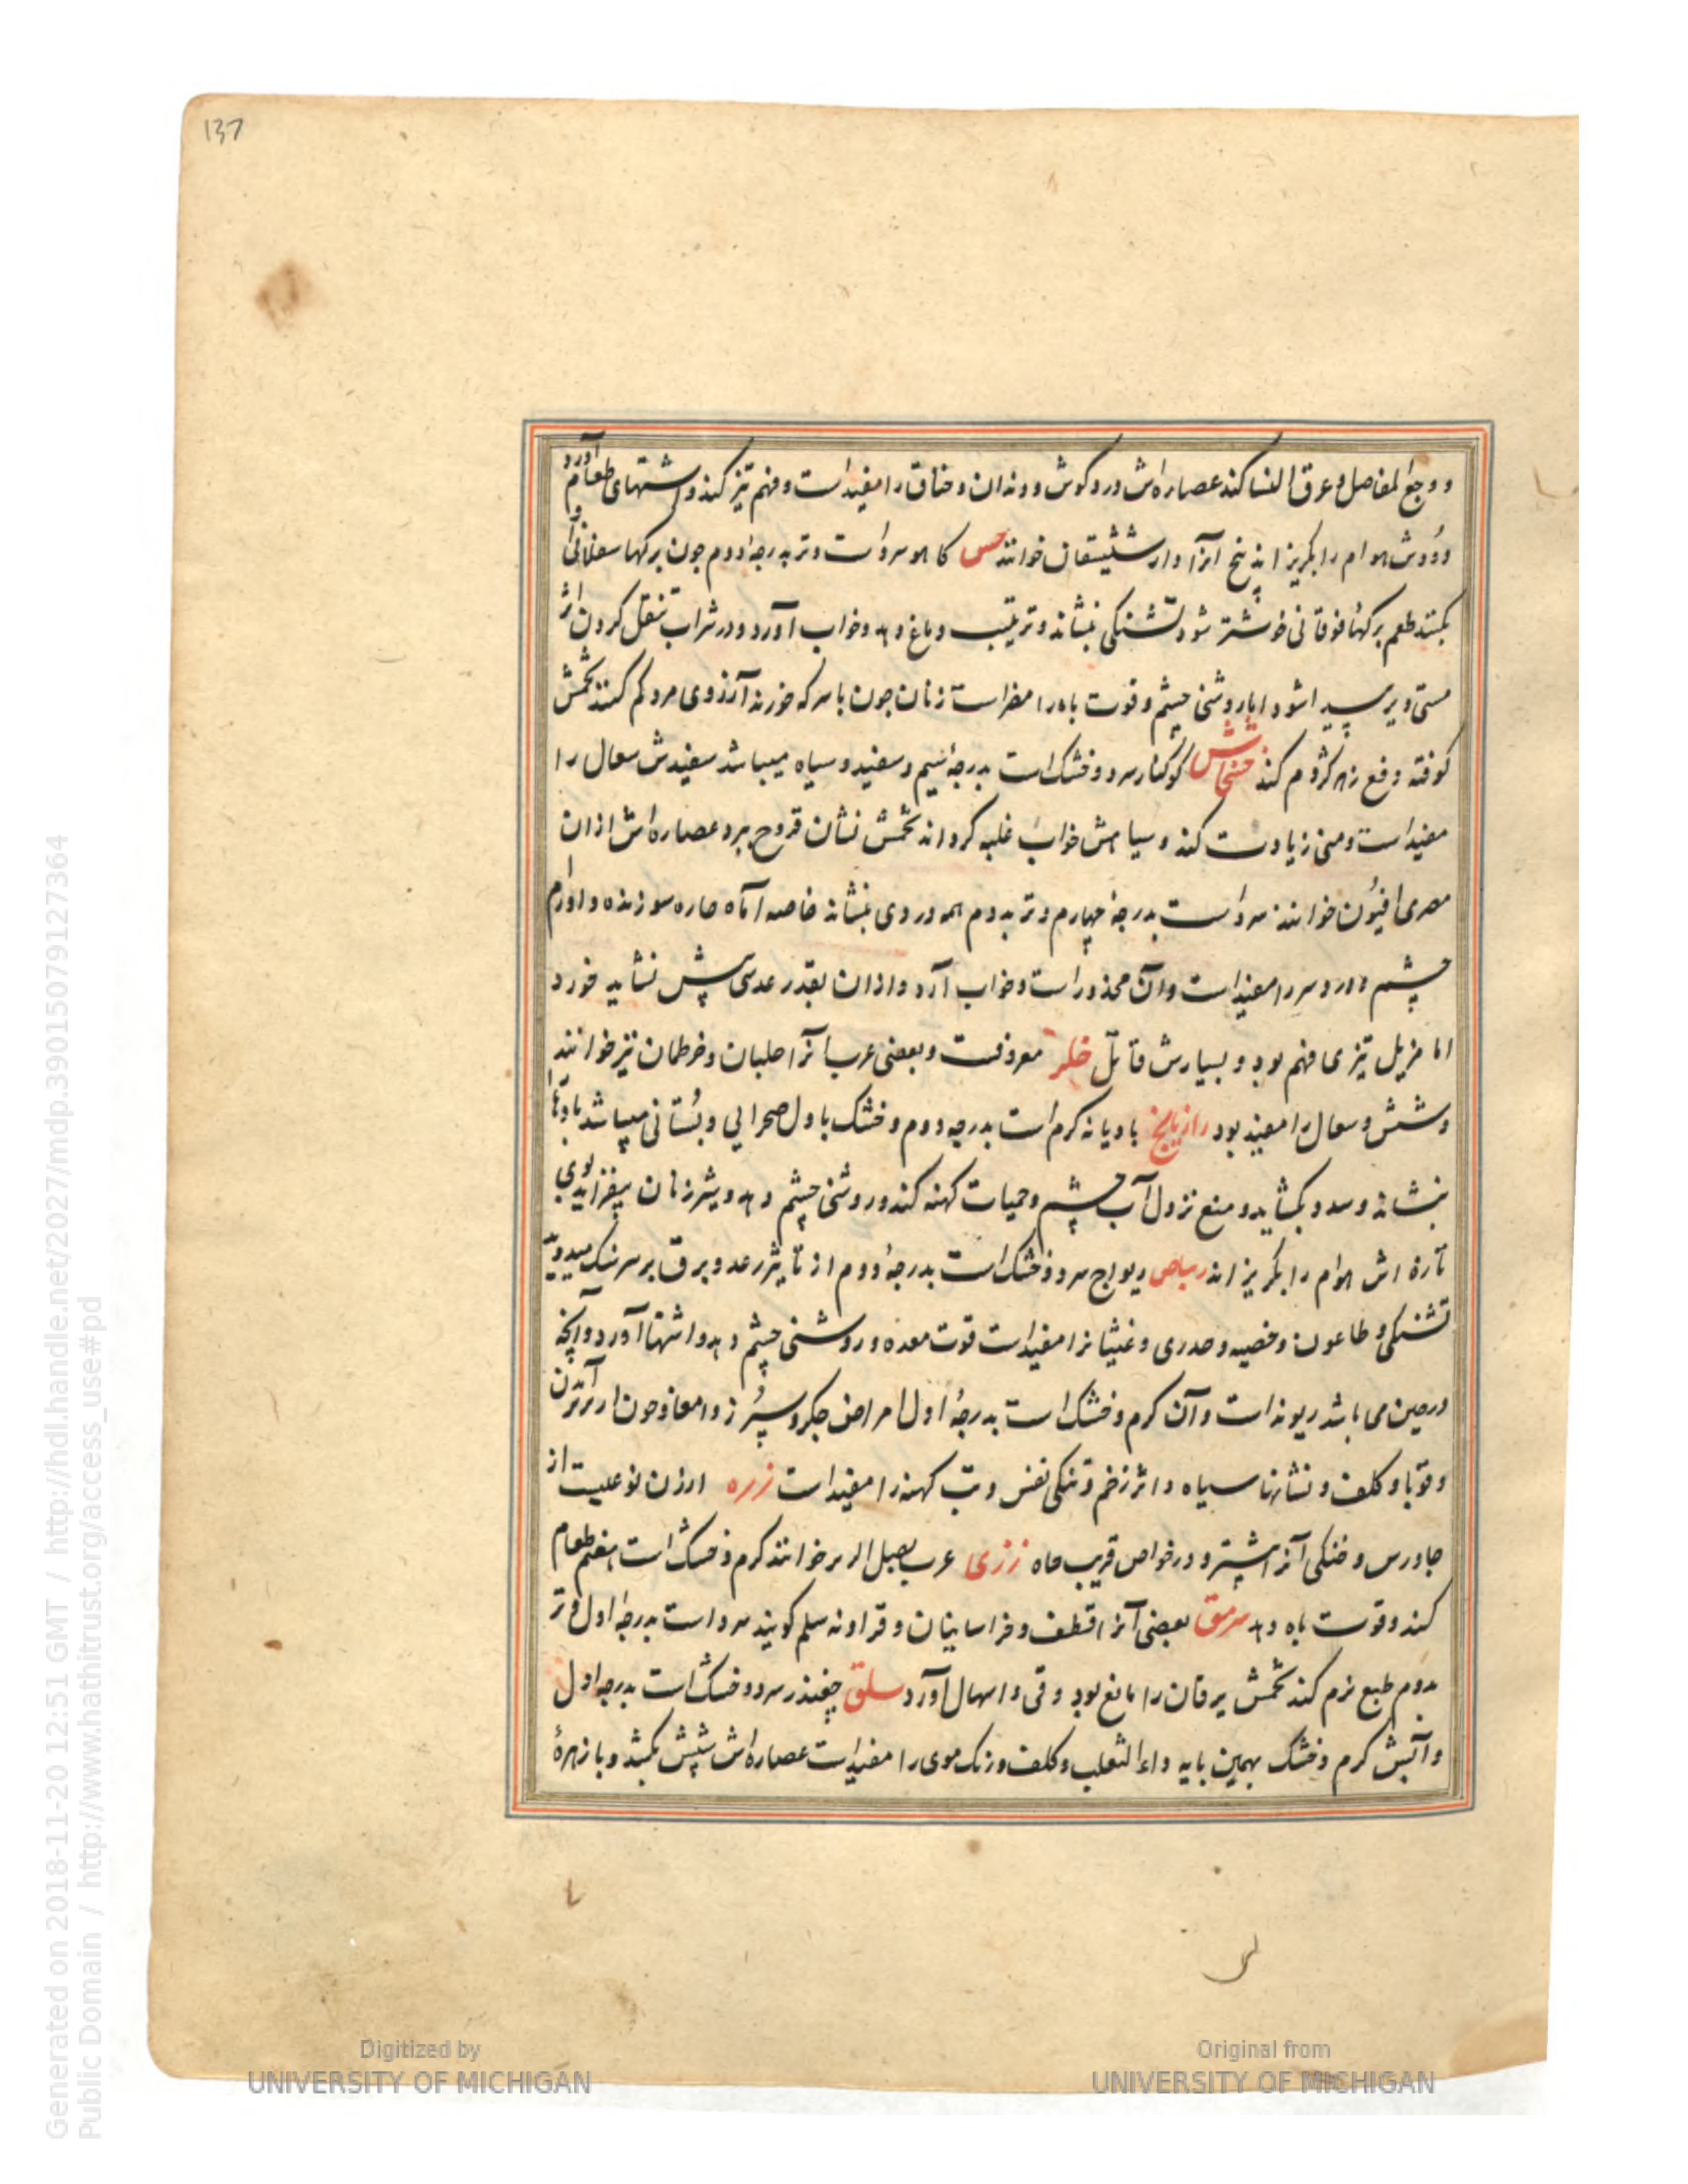 137
و وجع المفاصل و عرق النسا کند عصاره‌اش درد کوش و دندان و خناق را مفیدست و فهم تیز کند و اشتهای طعام آورد
و دودش هوام را بکریزاند بیخ آنرا دارشیشقان خوانند خس کاهو سردست و تر بدرجه دوم چون برکها سفلانی آن
بکنند طعم برکها فوقانی خوشتر شود تشنکی بنشاند و ترتیب دماغ دهد و خواب آورد و در شراب تنقل کردن اثر
مستی دیر پیدا شود اما روشنی چشم و قوت باه را مضر است زنان چون با سرکه خورند آرزوی مرد کم کنند تخمش
کوفته دفع زهر کژدم کند خشخاش کوکنار سرد و خشک است بدرجه سیم و سفید و سیاه میباشد سفیدش سعال را
مفیدست و منی زیادت کند و سیاهش خواب غلبه کرداند تخمش نشان قروح ببرد عصاره‌اش از ان
مصری افیون خوانند سردست بدرجه چهارم و تر بدوم همه دردی بنشاند خاصه آماه حاره سوزنده و اورام
چشم و درد سر را مفیدست و آن مخدر است و خواب آرد و از ان بقدر عدسی بیش نشاید خورد
اما مزیل تیزی فهم بود و بسیارش قاتل خلر معروفست و بعضی عرب آنرا حلبان و خرطمان نیز خوانند
و شش و سعال را مفید بود رازیانج بادیانه کرم است بدرجه دوم و خشک باول صحرایی و بستانی میباشد بادها
بنشاند و سدد بکشاید و منع نزول آب چشم و حمیات کهنه کند و روشنی چشم دهد و شیر زنان بیفزاید بوی
تازه اش هوام را بکریزاند ریباس ریواج سرد و خشک است بدرجه دوم از تاثیر رعد و برق بر سر سنک میروید
تشنکی و طاعون و حصبه و جدری و غثیانرا مفیدست قوت معده و روشنی چشم دهد و اشتها آورد و آنچه
در چین می باشد ریوند است و آن کرم و خشک است بدرجه اول امراض جکر و سپرز و امعا و خون از برآمدن
و قوبا و کلف و نشانها سیاه و اثر زخم و تنکی نفس و تب کهنه را مفیدست زره ارزن نوعیست از
جاورس و خنکی آنرا بیشتر و در خواص قریب جاه زری عرب بصل الزیر خوانند کرم و خشک است هضم طعام
کند و قوت باه دهد سرمق بعضی آنرا قطف و خراسانیان و قراونه سلم کویند سرد است بدرجه اول و تر
بدوم طبع نرم کند تخمش یرقان را مانع بود و قی و اسهال آورد سلق چغندر سرد و خشک است بدرجه اول
و آبش کرم و خشک بهمین پایه داء الثعلب و کلف و رنک موی را مفیدست عصاره‌اش شپش بکشد و با زهره
Digitized by
UNIVERSITY OF MICHIGAN
Original from
UNIVERSITY OF MICHIGAN
Generated on 2018-11-20 12:51 GMT / http://hdl.handle.net/2027/mdp.39015079127364
Public Domain / http://www.hathitrust.org/access_use#pd